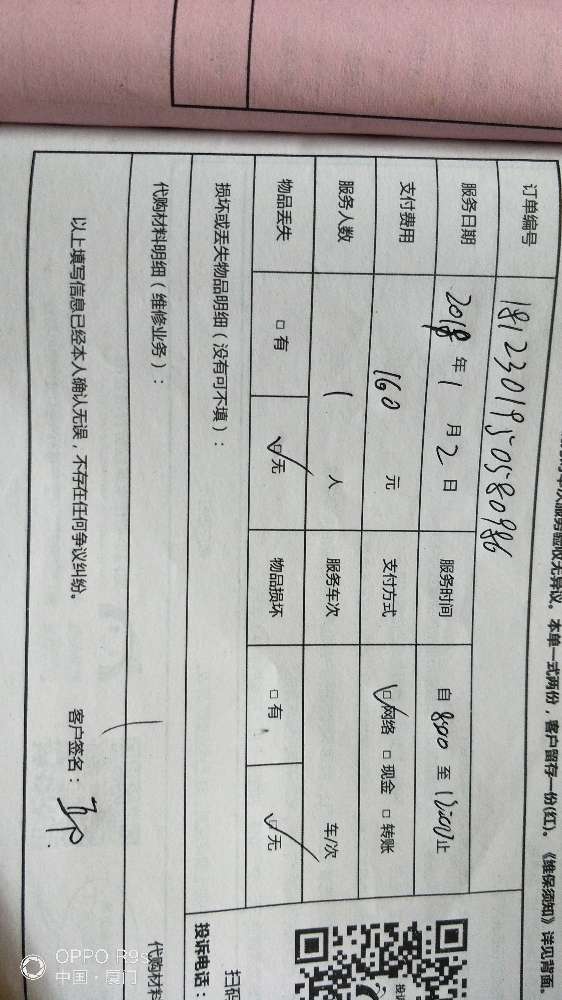 次服务验收无异议。本单一式两份，客户留存一份(红)。《维保须知》详见背面。
订单编号 1812301950580986
服务日期 2018年1月2日 服务时间 自800至1200止
支付费用 160元 支付方式 ☑网络 □现金 □转账
服务人数 1人 服务车次 车/次
物品丢失 □有 ☑无 物品损坏 □有 ☑无
损坏或丢失物品明细（没有可不填）：
代购材料明细（维修业务）：
以上填写信息已经本人确认无误，不存在任何争议纠纷。 客户签名：
扫码
投诉电话：
代购材料
OPPO R9s
中国·厦门